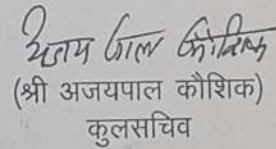 अजय पाल कौशिक
(श्री अजयपाल कौशिक)
कुलसचिव